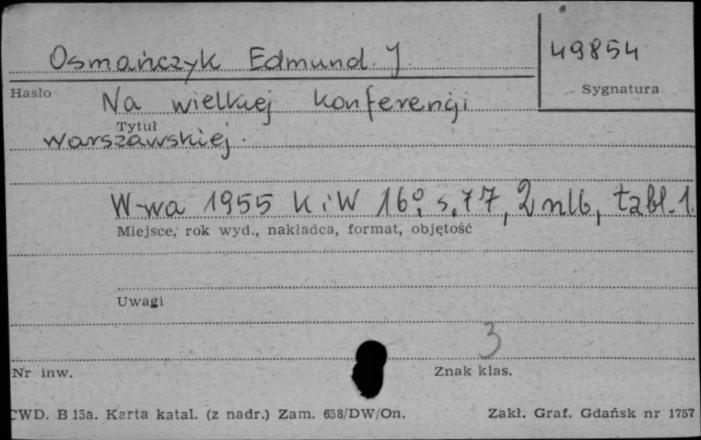 Osmańczyk Edmund J
49854
Hasło
Sygnatura
Na wielkiej konferencji
Tytuł
warszawskiej.
W-wa 1955 KiW 16º, s. 77, 2 nlb, tabl. 1.
Miejsce, rok wyd., nakładca, format, objętość
Uwagi
3
Nr inw.
Znak klas.
CWD. B 15a. Karta katal. (z nadr.) Zam. 658/DW/On.
Zakł. Graf. Gdańsk nr 1757